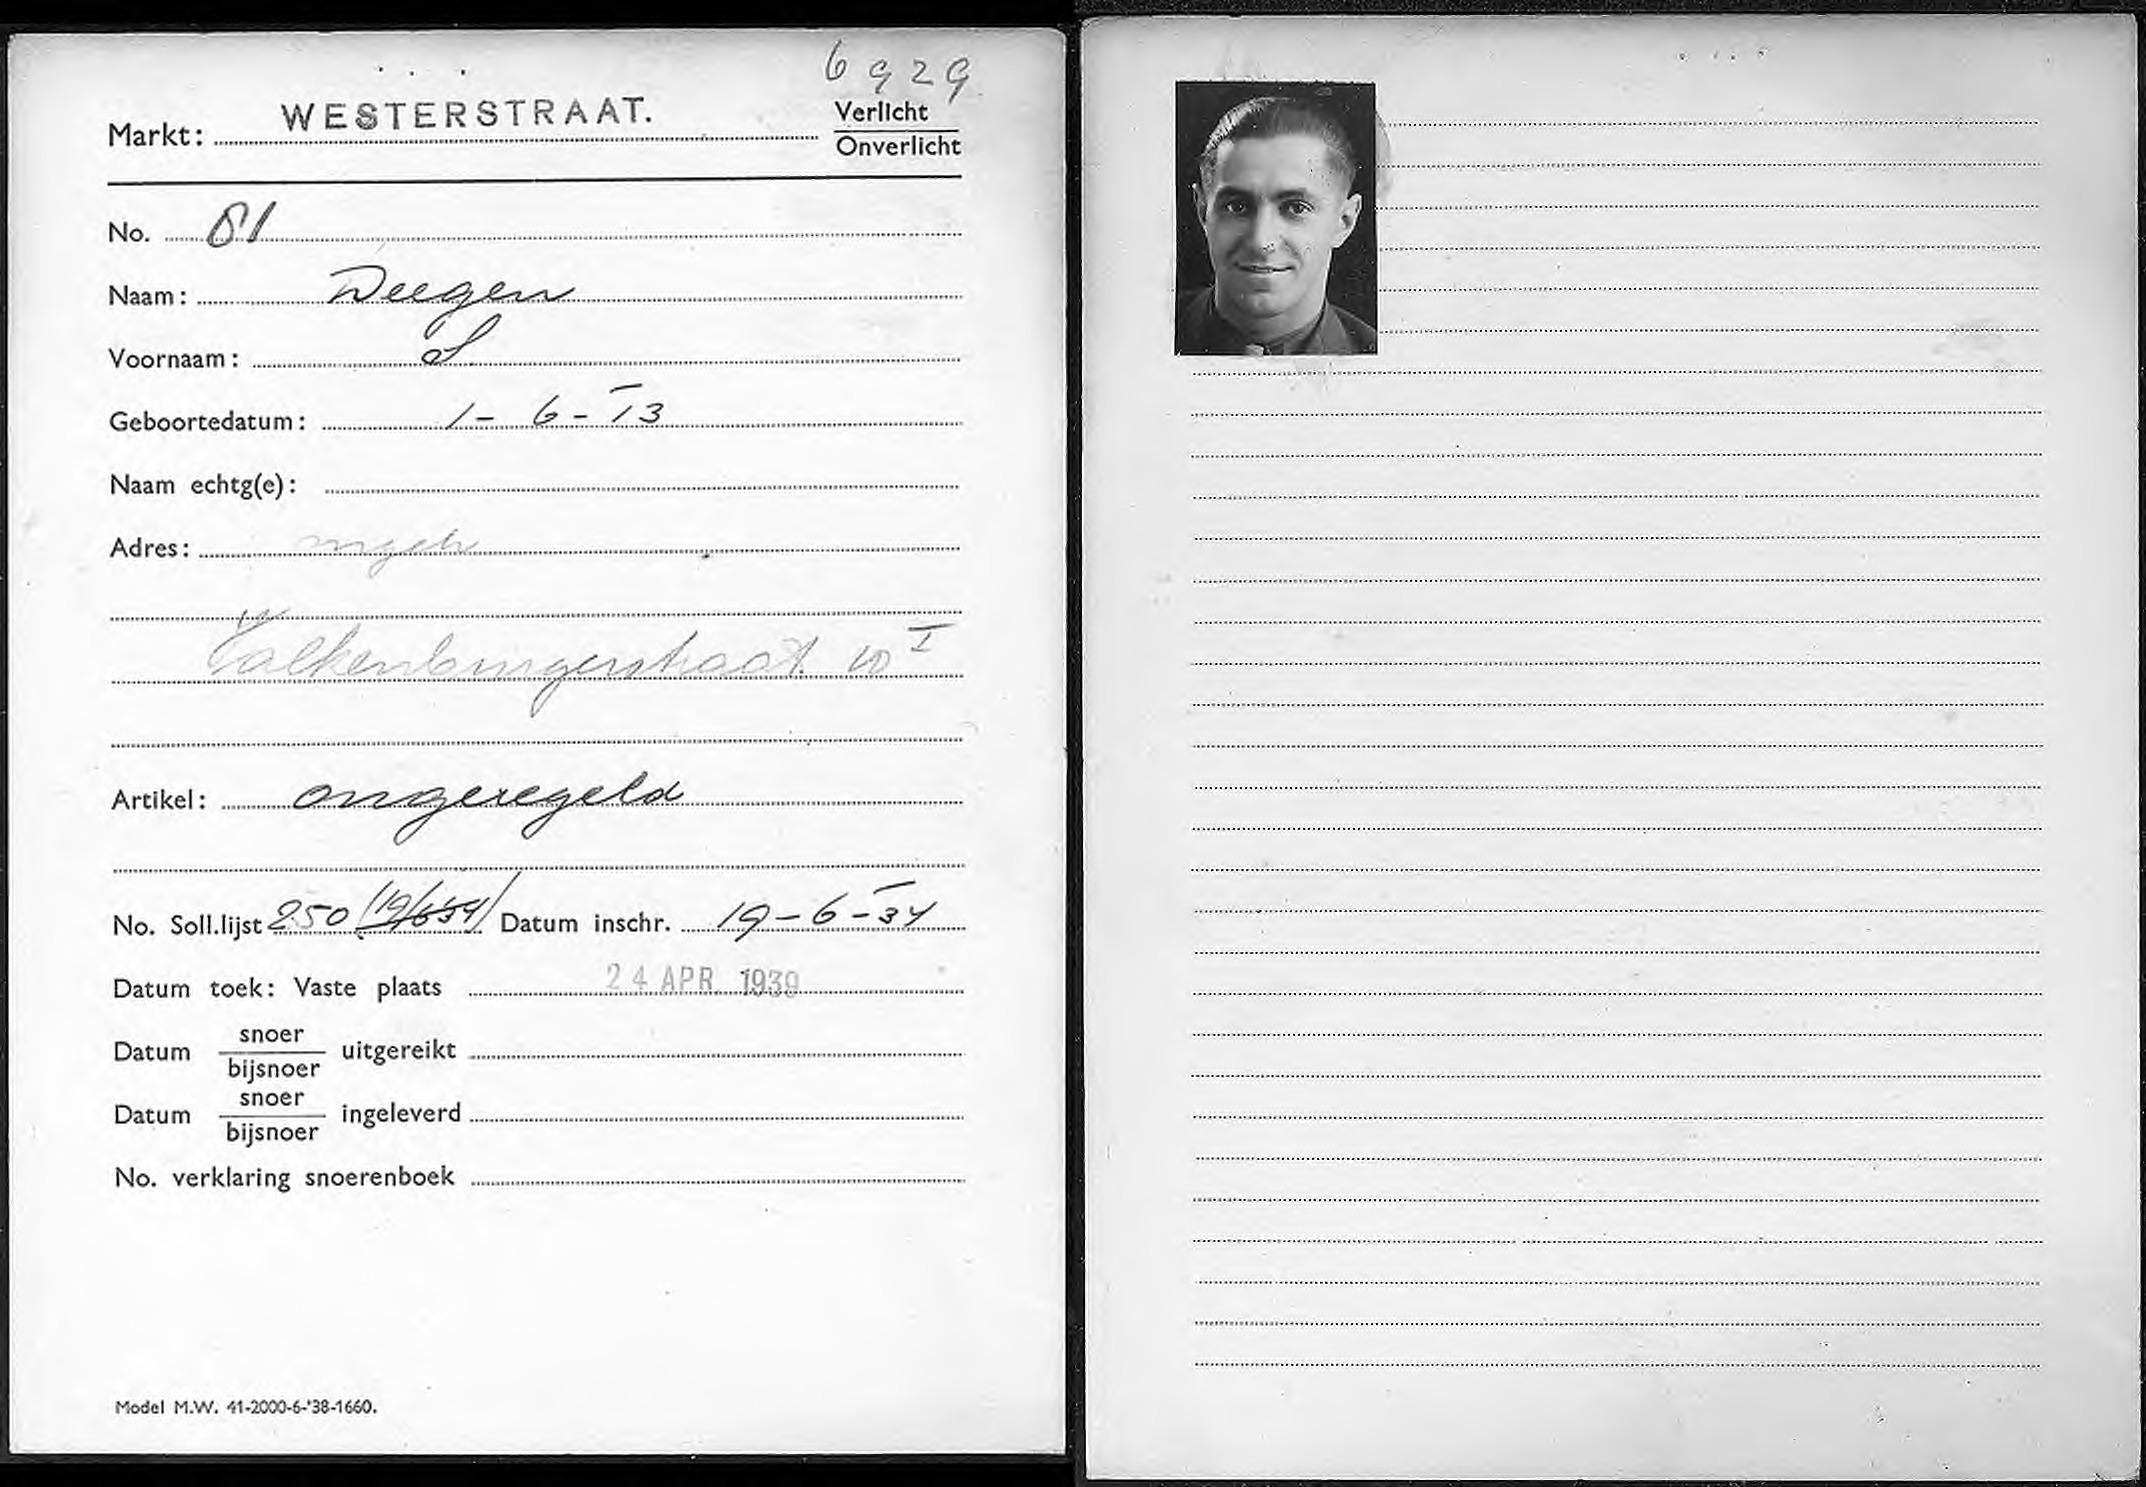 6929
Markt: WESTERSTRAAT. Verlicht
Onverlicht
No. 81
Naam: Deegen
Voornaam: S
Geboortedatum: 1-6-13
Naam echtg(e):
Adres:
Valkenburgerstraat 10 I
Artikel: ongeregeld
No. Soll.lijst 250 (19/6 34) Datum inschr. 19-6-34
Datum toek: Vaste plaats 24 APR. 1939
Datum snoer
bijsnoer uitgereikt
Datum snoer
bijsnoer ingeleverd
No. verklaring snoerenboek
Model M.W. 41-2000-6-'38-1660.